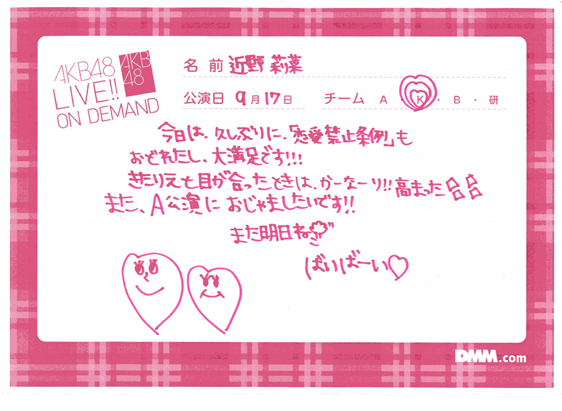 AKB48
LIVE!!
ON DEMAND
AKB
48
名前 近野 莉菜
公演日 9月17日 チーム A・K・B・研
今日は、久しぶりに、「恋愛禁止条例」も
おどれたし、大満足です!!!
きたりえと目が合ったときは、かーなーり!!高まった
また、A公演に おじゃましたいです!!
また明日ね
ばいばーい♡
DMM.com